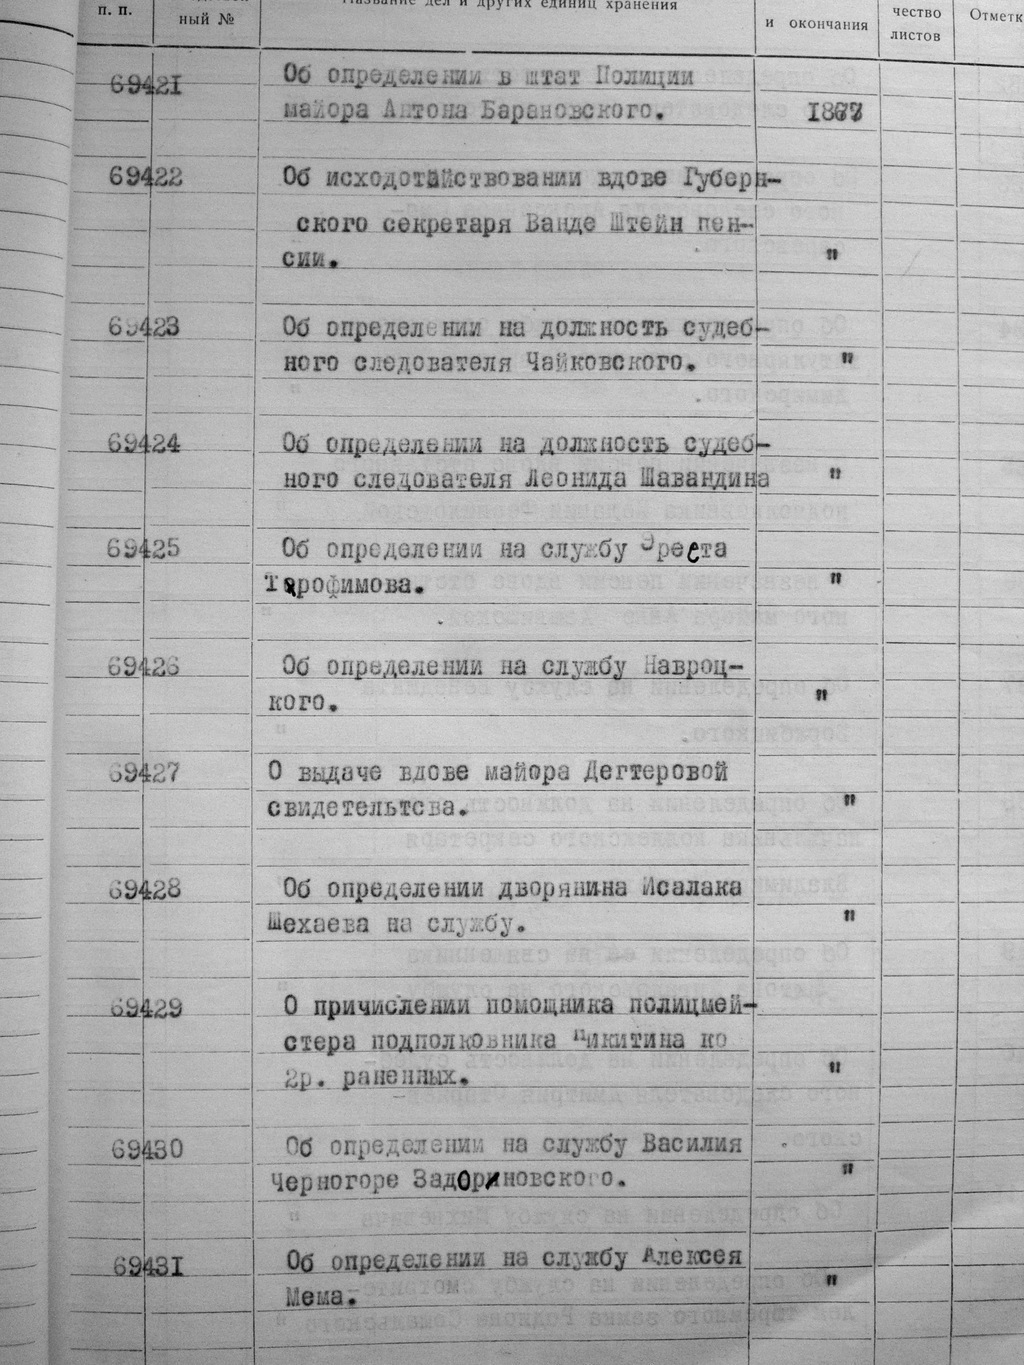 п. п.
ный №
Название дел и других единиц хранения
и окончания
чество
листов
Отметк
69421 Об определении в штат Полиции
майора Антона Барановского. 1877
69422 Об исходотайствовании вдове Губерн-
ского секретаря Ванде Штейн пен-
сии. "
69423 Об определении на должность судеб-
ного следователя Чайковского. "
69424 Об определении на должность судеб-
ного следователя Леонида Шавандина "
69425 Об определении на службу Эреста
Трофимова. "
69426 Об определении на службу Навроц-
кого. "
69427 О выдаче вдове майора Дегтеровой
свидетельтсва. "
69428 Об определении дворянина Исалака
Шехаева на службу. "
69429 О причислении помощника полицмей-
стера подполковника Никитина ко
2р. раненных. "
69430 Об определении на службу Василия
Черногоре Задориновского. "
69431 Об определении на службу Алексея
Мема. "